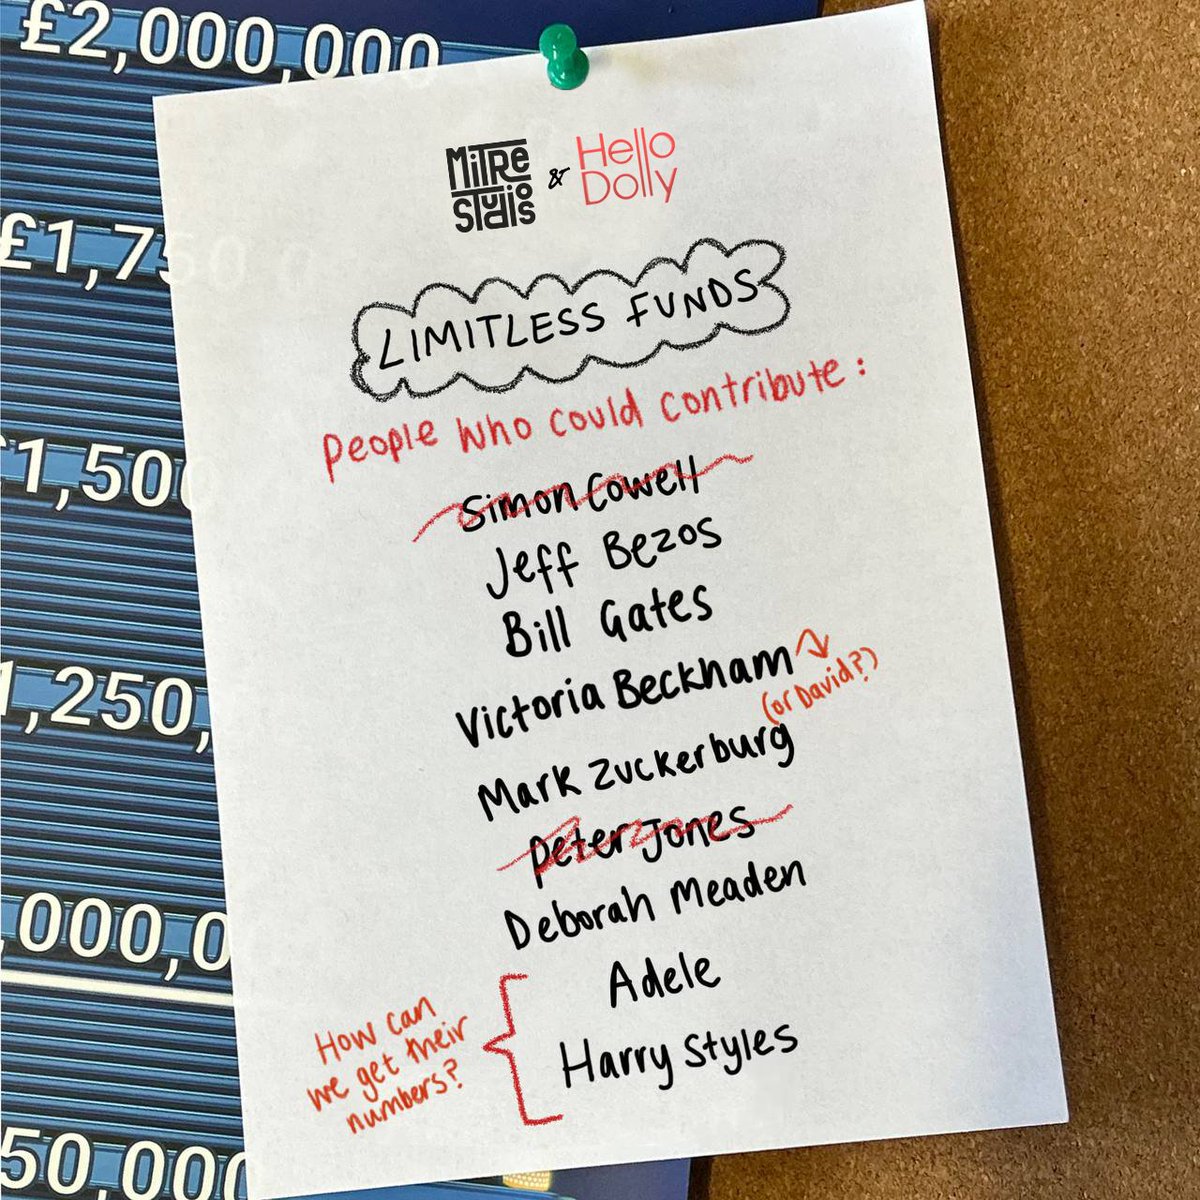 £2,000,000
£1,750,0
£1,500
1,250,
,000,0
50,000
MiTRe
STudios
&
Hello
Dolly
LIMITLESS FUNDS
People who could contribute:
Simon Cowell
Jeff Bezos
Bill Gates
Victoria Beckham
(or David?)
Mark Zuckerburg
Peter Jones
Deborah Meaden
Adele
Harry Styles
How can
we get their
numbers?